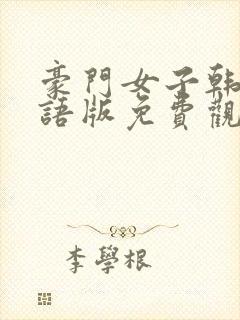 豪門女子韩
語版免費觀
李學根